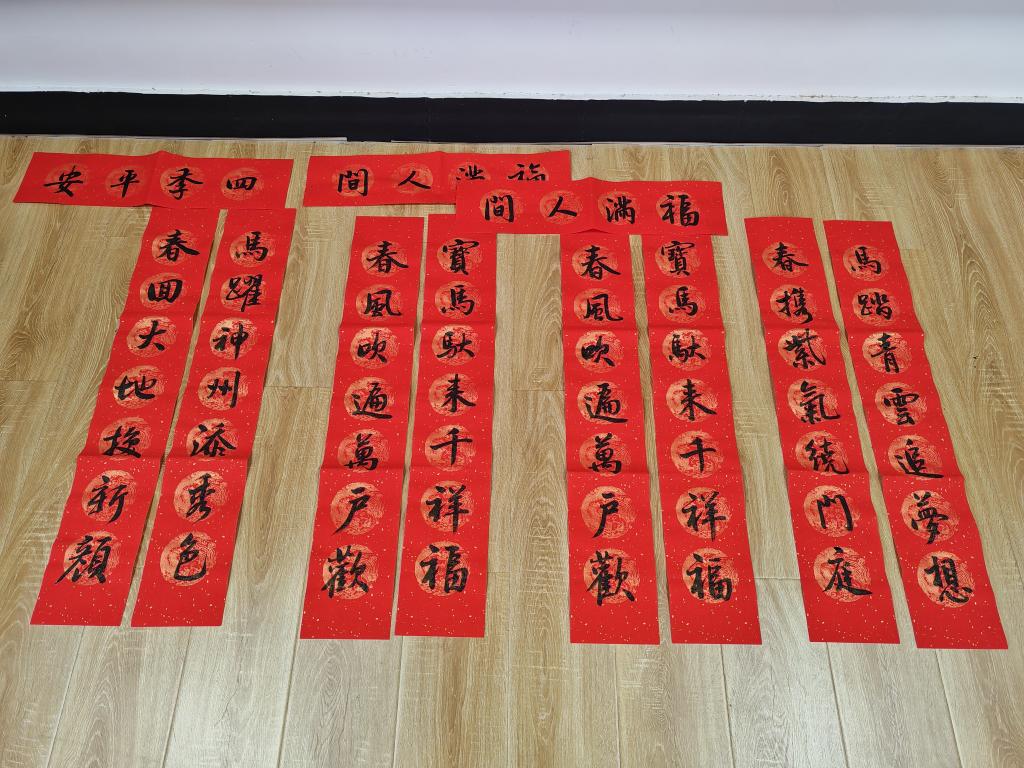 四季平安
馬躍神州添秀色
春回大地换新顔
福满人間
寶馬馱来千祥福
春風吹遍萬户歡
福满人間
寶馬馱来千祥福
春風吹遍萬户歡
馬踏青雲追夢想
春携紫氣绕門庭